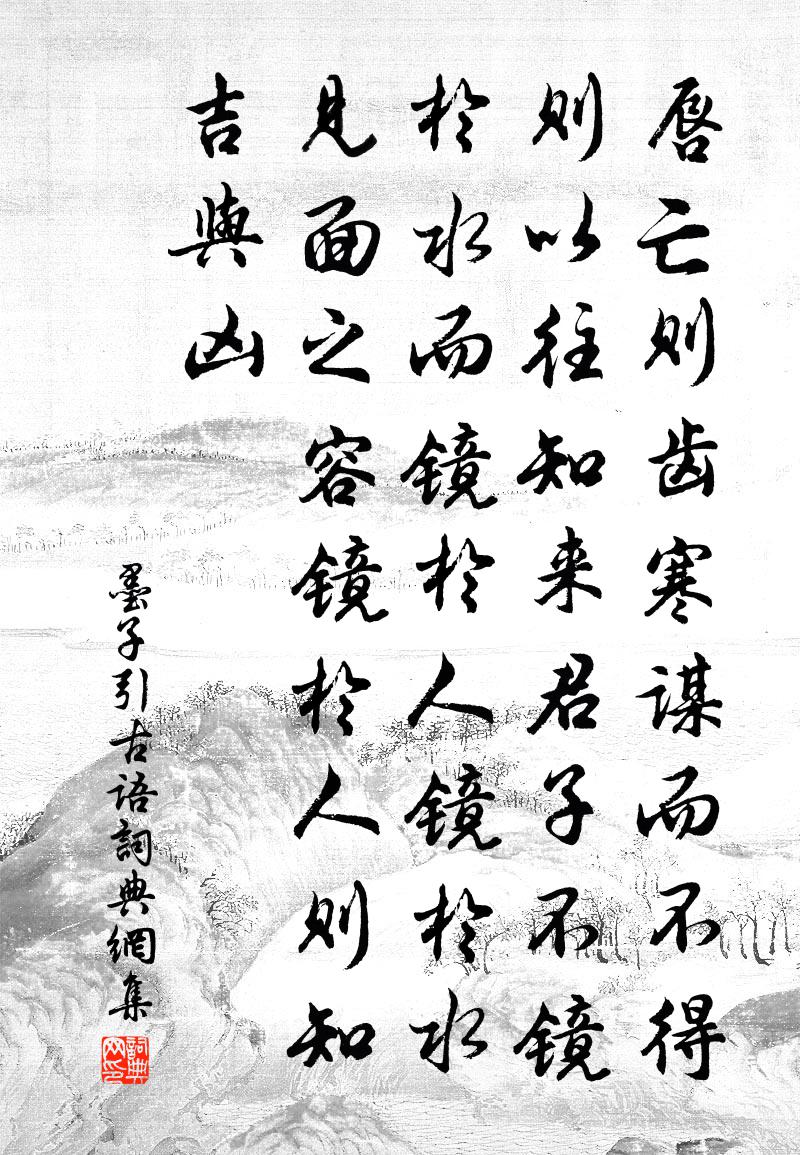 唇亡则齿寒谋而不得
则以往知来君子不镜
於水而镜於人镜於水
见面之容镜於人则知
吉與凶
墨子引古语詞典網集